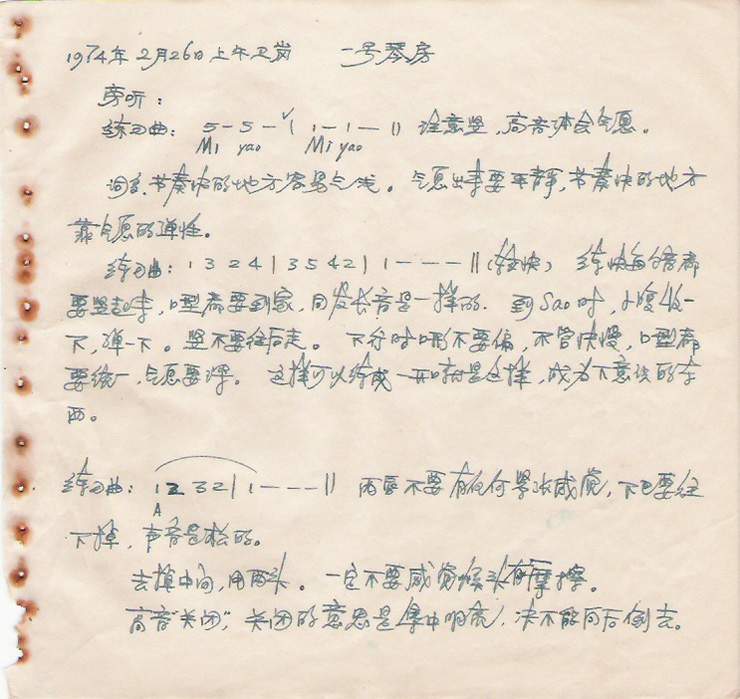 1974年2月26日上午卫岗 一号琴房
旁听：
练习曲： 5 – 5 – ˇ| 1 – 1 — || 注意竖，高音体会气息。
Mi yao Mi yao
词多、节奏快的地方容易气浅。气息出来要平静，节奏快的地方
靠气息的弹性。
练习曲： 1 3 2 4 | 3 5 4 2 | 1 — — — ||（轻快） 练快每个音都
要竖起来，口型都要到家，同发长音是一样的。 到Sao时，小腹收一
下，弹一下。竖不要往后走。 下行时口形不要偏，不管快慢，口型都
要统一，气息要深。 这样可以练成一开口就是这样，成为下意识的东
西。
练习曲： 1 2 3 2 | 1 — — — || 两唇不要有任何紧张感觉，下巴要往
A
下掉，声音是松的。
去掉中间，用两头。一定不要感觉喉头有摩擦。
高音“关闭”，关闭的意思是集中明亮，决不能向后倒去。